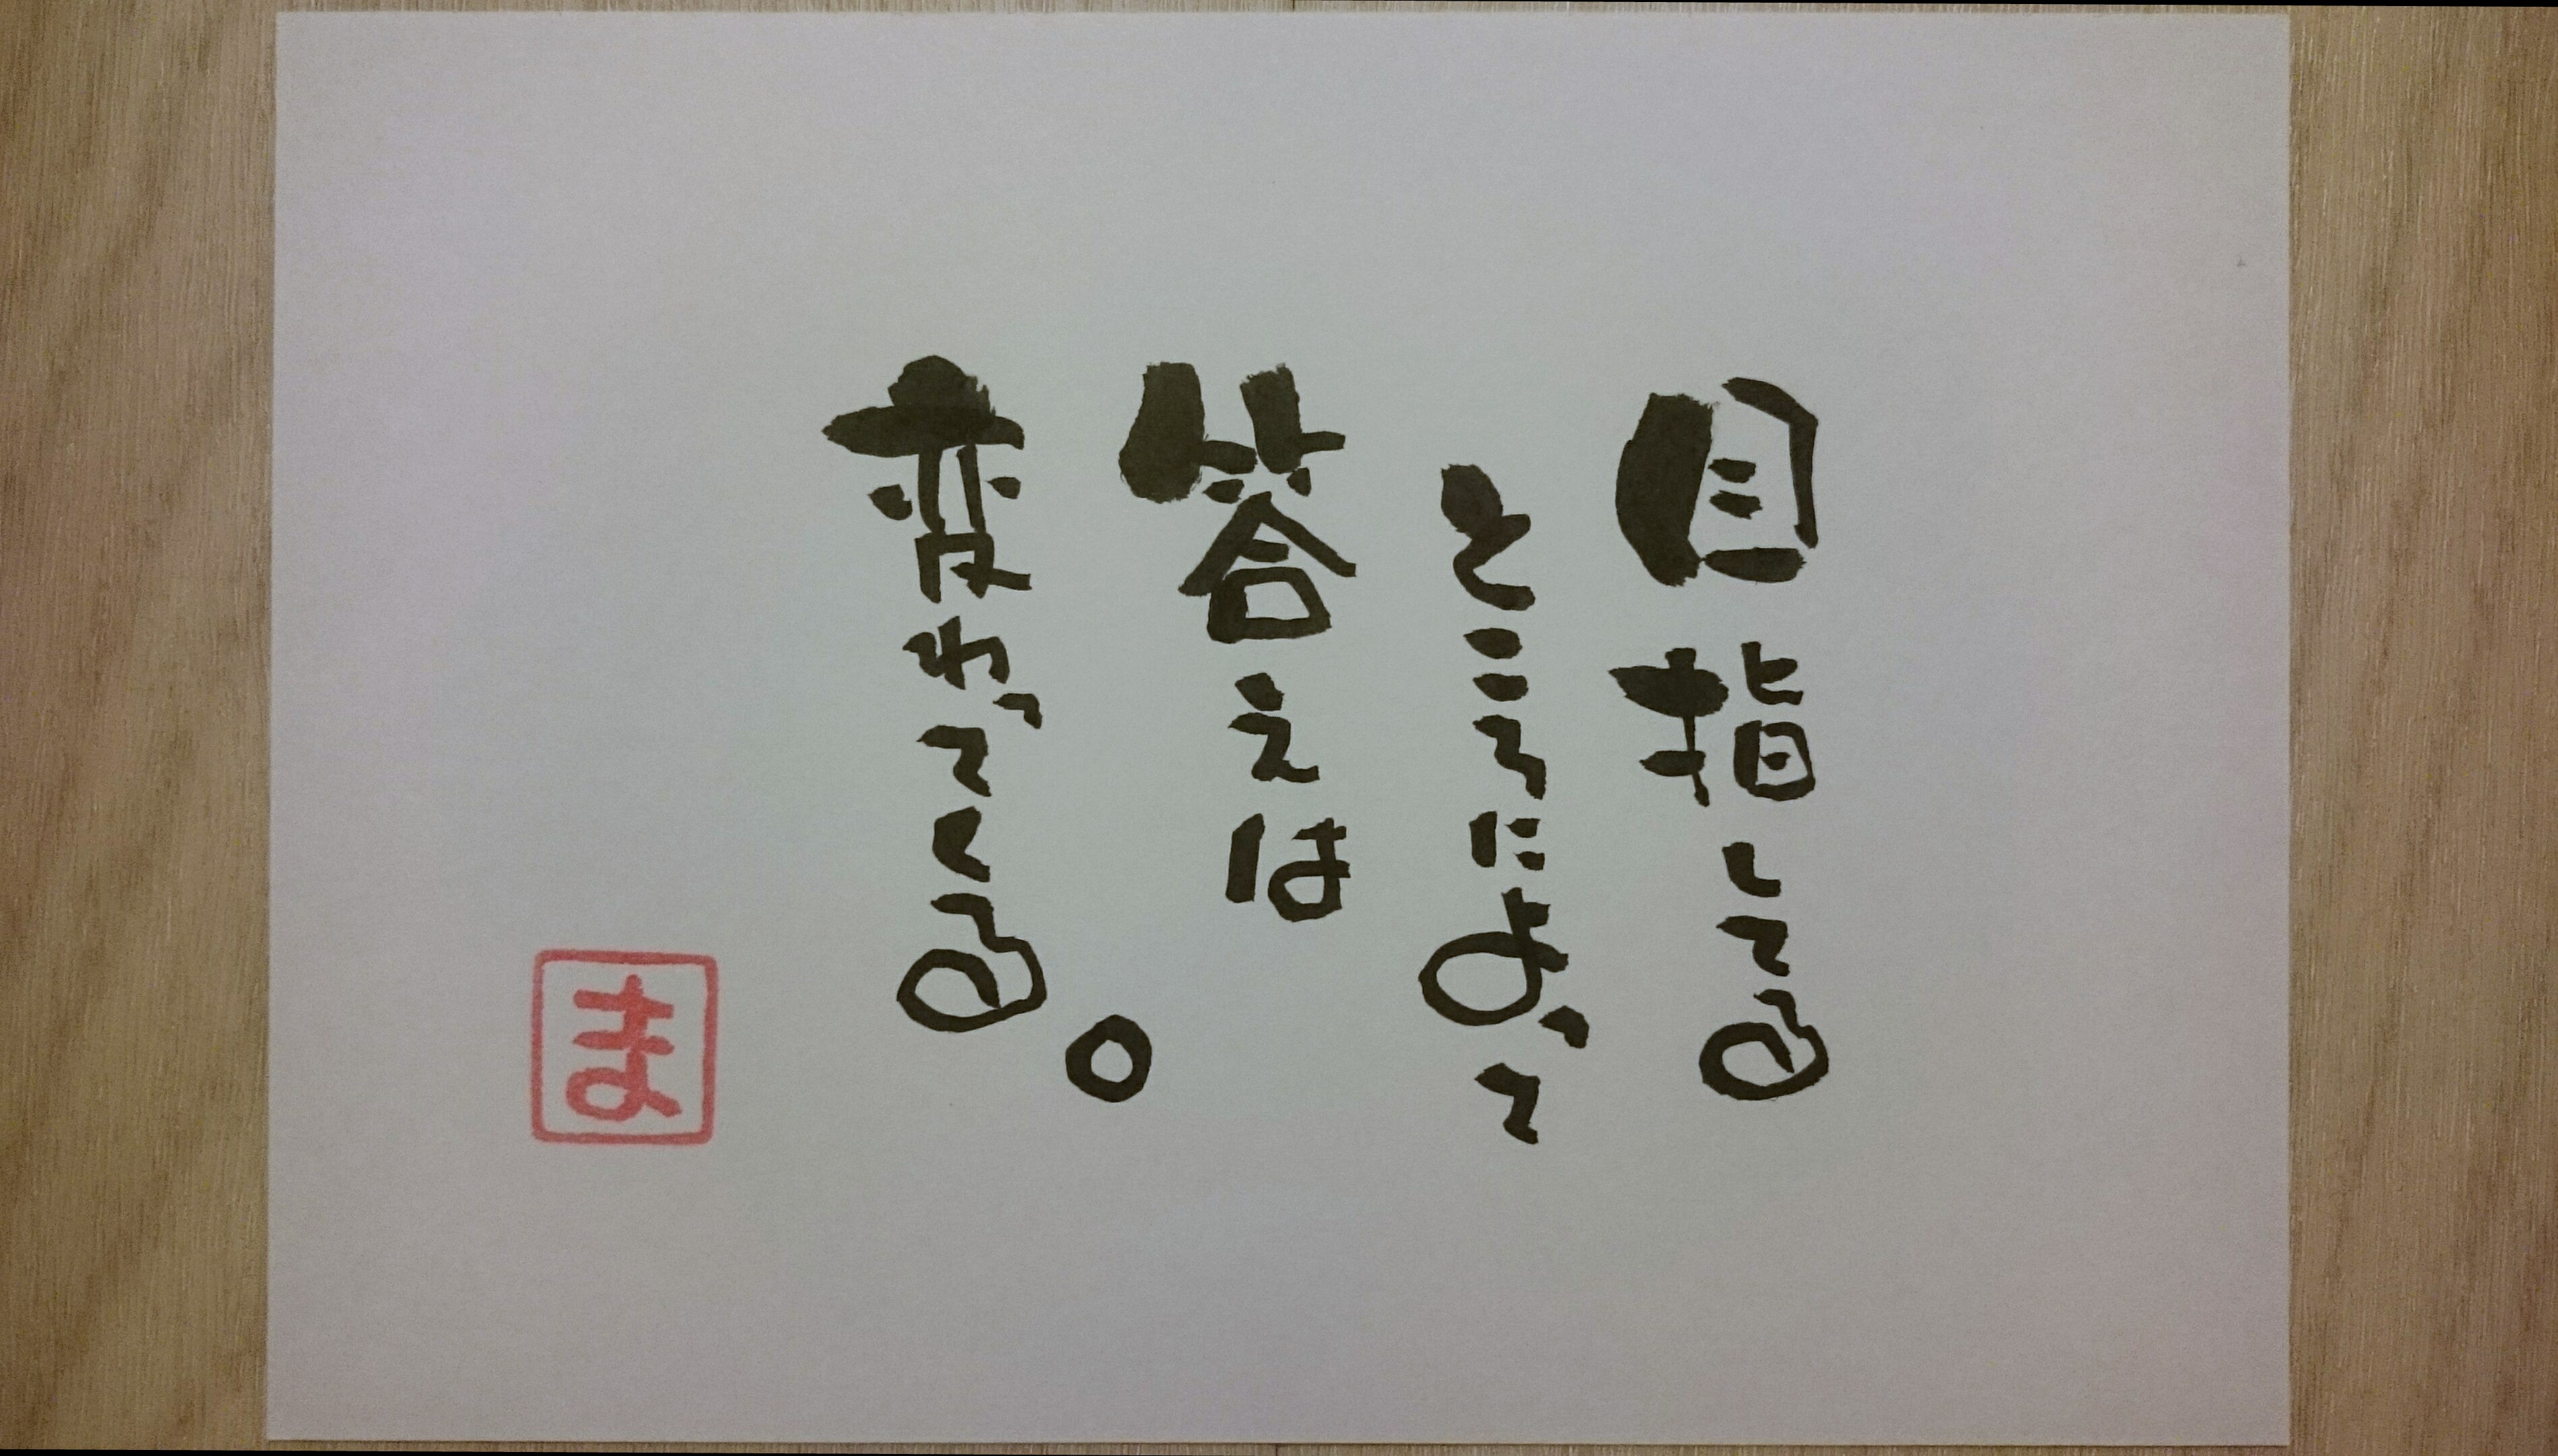 目指してる
ところによって
答えは
変わってくる。
ま